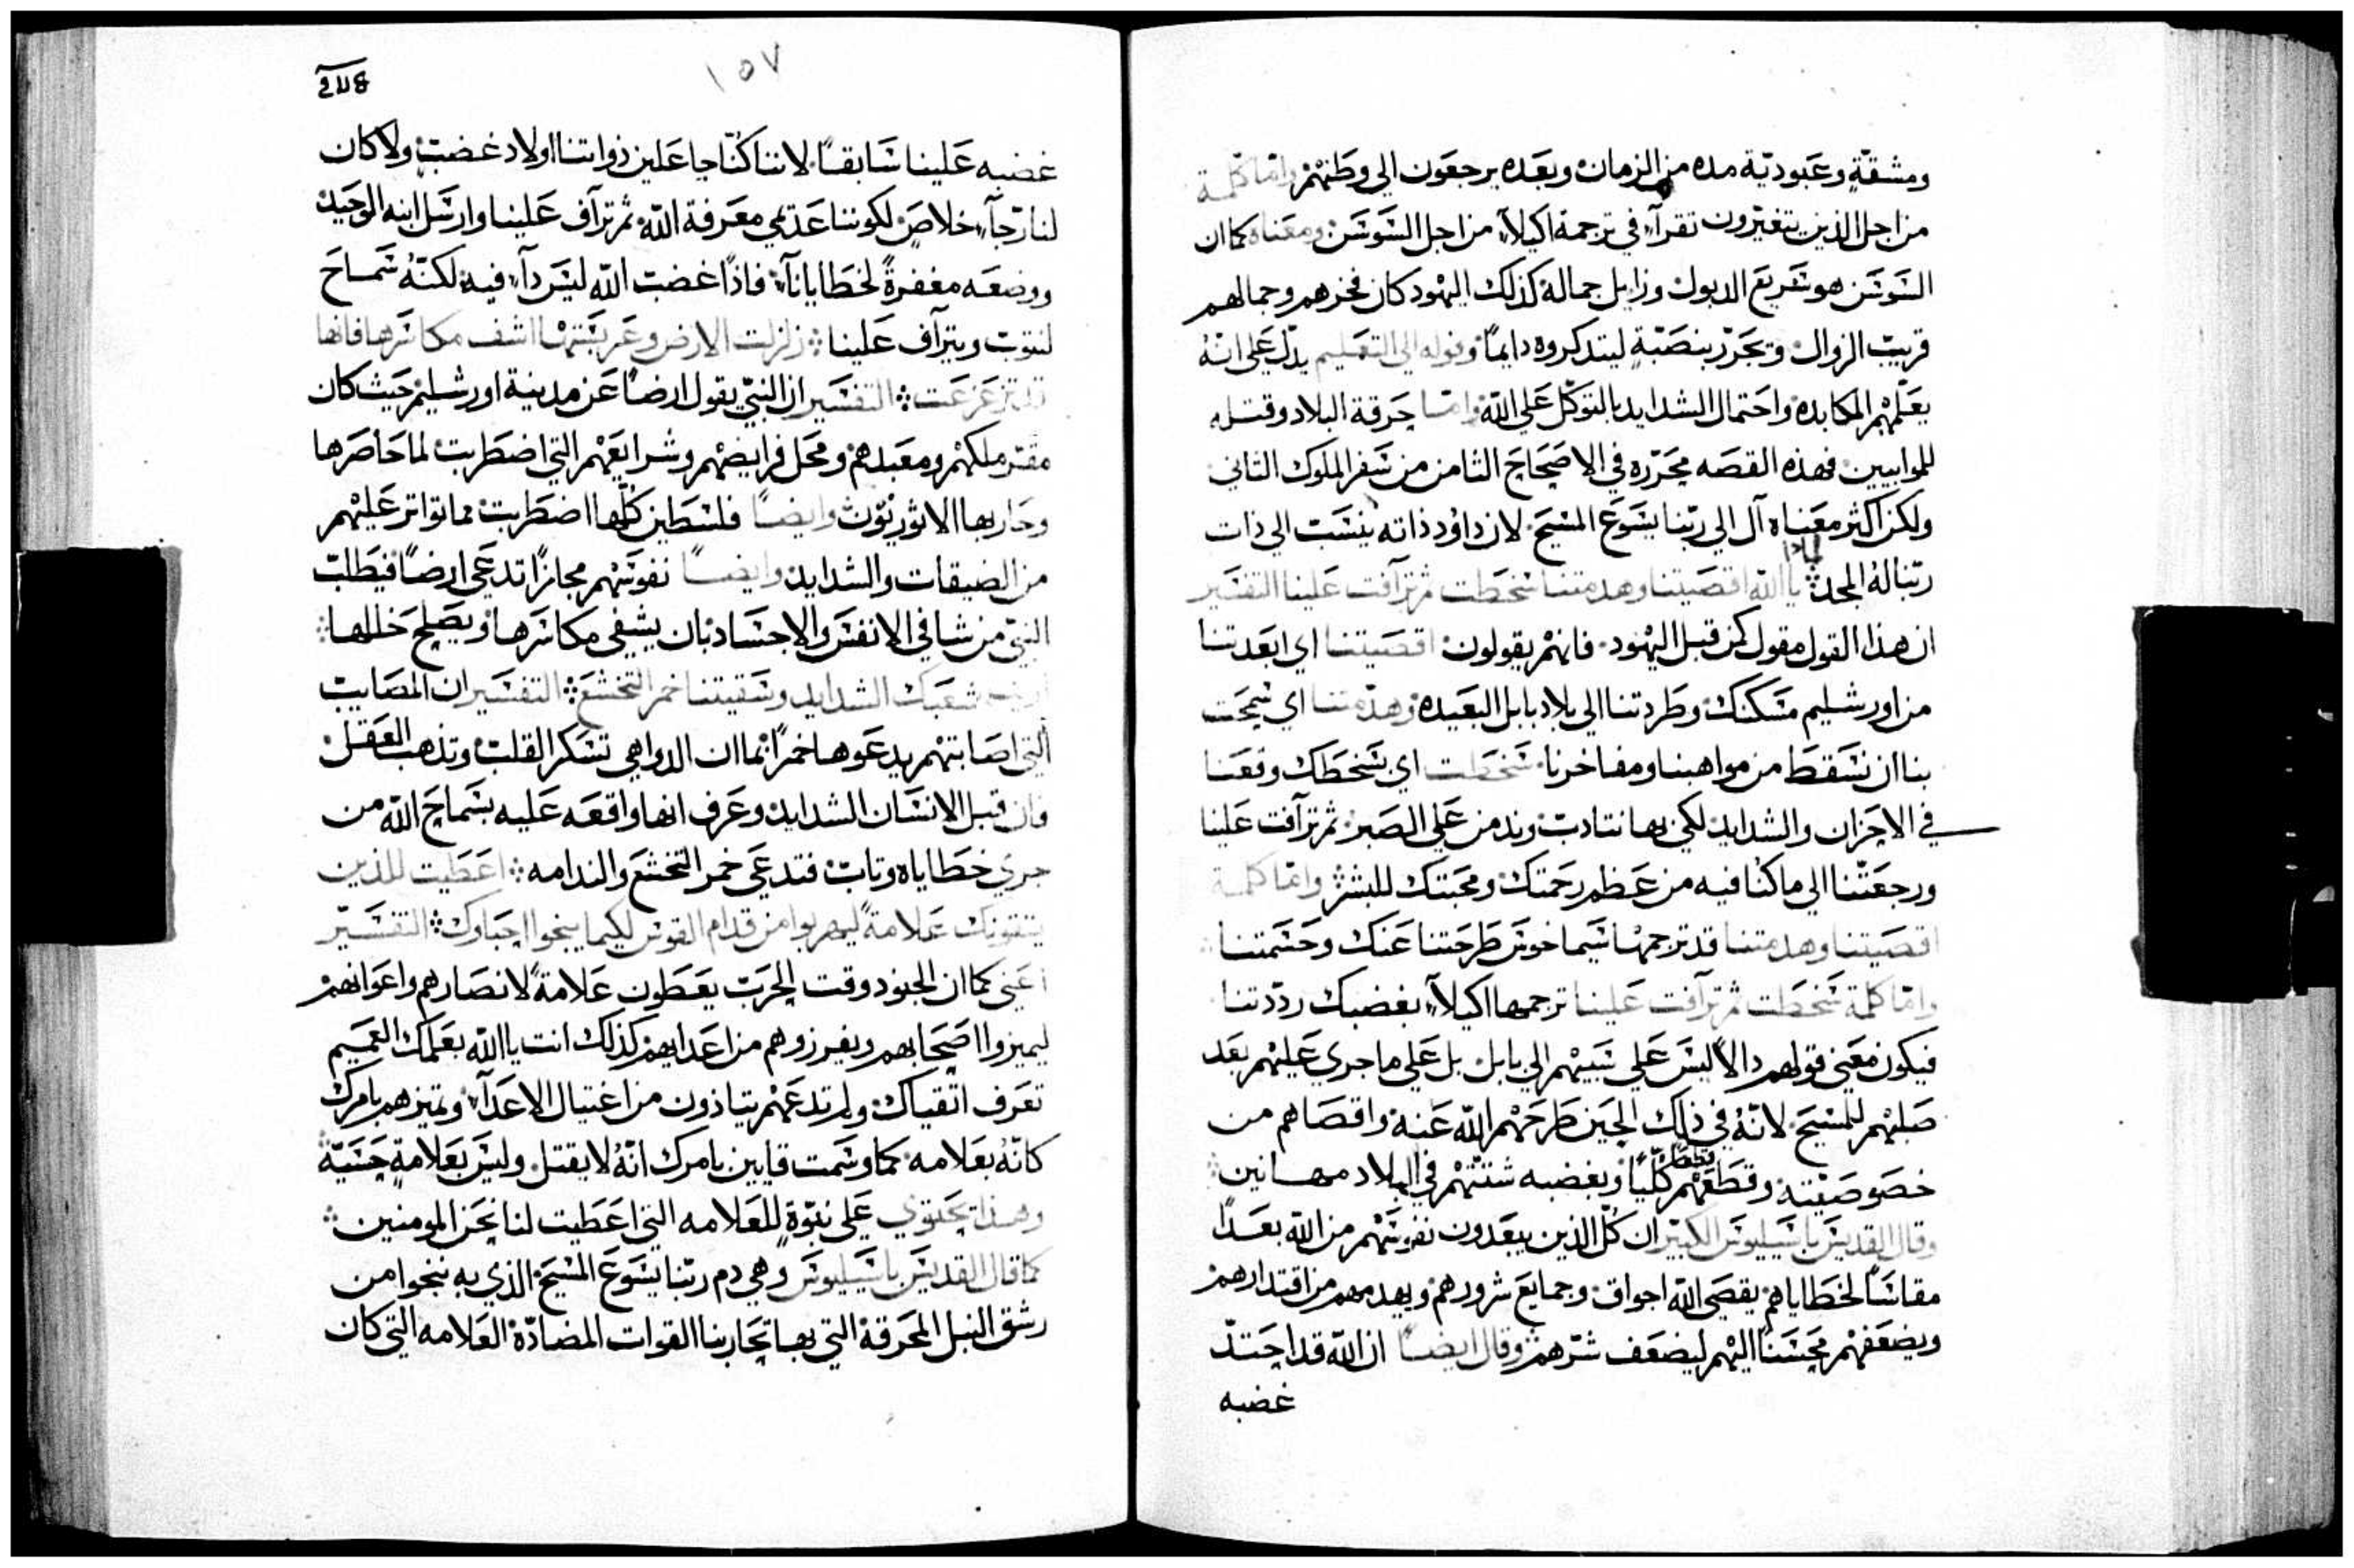 ومشقّةٍ وعبوديّة مده من الزمان وبعده يرجعون الي وطنهم وامّا كلمة
من اجل الذين يتغيّرون تقرآ في ترجمة اكيلا من اجل السَوسَن ومعناه كما ان
السَوسَن هو سَريع الدبول وزايل جماله كذلك اليهود كان فخرهم وجمالهم
قريب الزوال وتحرّر بنصبّةٍ ليتدكروه دايماً وقوله الي التعليم يدلّ علي انهُ
يعلّمهم المكابده واحتمال الشدايد بالتوكّل علي اللّه وامّا حرقة البلاد وقتله
للموابيين فهذه القصه محرّره في الاصحاح الثامن من سَفر الملوك الثاني
ولكن اكثر معناه آل الي ربّنا يسَوع المسَيح لان داوُد ذاته ينسَب الي ذات
ربّنا لهُ المجد يا اللّه اقصيتنا وهدمتنا سَخطت ثم ترآفت علينا التفسَير
ان هذا القول مقول كمن قبل اليهود فانهم يقولون اقصيتنا اي ابعدتنا
من اورشليم مسَكنك وطردتنا الي بلاد بابل البعيده وهدّمتنا اي سَمحت
بنا ان نسَقط من مواهبنا ومفاخرنا سَخطت اي بسَخطك وقعنا
في الاحزان والشدايد لكي بها نتادب وندمن علي الصبر ثم ترآفت علينا
ورجعتّنا الي ما كنا فيه من عظم رحمتك ومحبتك للبشر وامّا كلمة
اقصيتنا وهدمتنا قد ترجمها سَيماخوس طرحتنا عنك وحسَمتنا
وامّا كلمة سَخطت ثم ترآفت علينا ترجمها اكيلا بغضبك ردّدتنا
فيكون معني قولهم دالاً ليسَ علي سَبيهم الي بابل بل علي ما جري عليهم بعد
صلبهم للمسَيح لانّهُ في ذلك الحين طرحهم اللّه عنه واقصاهم من
خصوصيّته وقطعهم كلّيّاً وبغضبه شتتهم في البلاد مهانين
وقال القديسَ باسَيليوسَ الكبير ان كلّ الذين يبعدون نفوسَهم من اللّه بعداً
مقاسَاً لخطاياهم يقصي اللّه اجواق وجمايع شرورهم ويهدمهم من اقتدارهم
ويضعفهم محسَناً اليهم ليضعف شرّهم وقال ايضاً ان اللّه قد احتدّ
غضبه
١٥٧
غضبه علينا سَابقاً لاننا كنّا جاعلين ذواتنا اولاد غضب ولا كان
لنا رجآ خلاص لكوننا عدمي معرفة اللّه ثم ترآف علينا وارسَل ابنه الوحيد
ووضعه مغفرةً لخطايانآ فاذاً غضب اللّه ليسَ دآ فيه لكنّهُ سَماح
لنتوب ويترآف علينا زلزلت الارض وعربسَتها اشف مكاسَرها فانها
قد تزعزعت التفسَير ان النبيّ يقول ارضاً عن مدينة اورشليم حيث كان
مقرّ ملكهم ومعبدهم ومحل فرايضهم وشرايعهم التي اضطربت لما حاصرها
وحاربها الاثوريّون وايضاً فلسَطين كلّها اضطربت مما تواتر عليهم
من الضيقات والشدايد وايضاً نفوسَهم مجازاً تدعي ارضاً فيطلب
النبيّ من شافي الانفسَ والاجسَاد بان يشفي مكاسَرها ويصلح خللها
اريت شعبك الشدايد وسَقيتنا خمر التخشع التفسَير ان المصايب
التي اصابتهم يدعوها خمراً بما ان الدواهي تسَكر القلب وتذهب العقل
فان قبل الانسَان الشدايد وعرف انها واقعه عليه بسَماح اللّه من
جري خطاياه وتاب فتدعي خمر التخشع والندامه اعطيت للذين
يتقونك علامةً ليهربوا من قدام القوسَ لكيما ينجوا احباوك التفسَير
اعني كما ان الجنود وقت الحرب يعطون علامةً لانصارهم واعوانهم
ليميزوا اصحابهم ويفرزوهم من اعدايهم كذلك انت يا اللّه بعلمك العميم
تعرف اتقياك ولم تدعهم يتاذون من اغتيال الاعدآ وتميزهم بامرك
كانّهُ بعلامه كما وسَمت قايين بامرك انّهُ لا يقتل وليسَ بعلامةٍ حسَيّة
وهذا يحتوي علي نبوّةٍ للعلامه التي اعطيت لنا نحن المومنين
كما قال القديسَ باسَيليوسَ وهي دم ربّنا يسَوع المسَيح الذي به ننجوا من
رشق النبل المحرقة التي بها تحاربنا القوات المضادّة العلامه التي كان